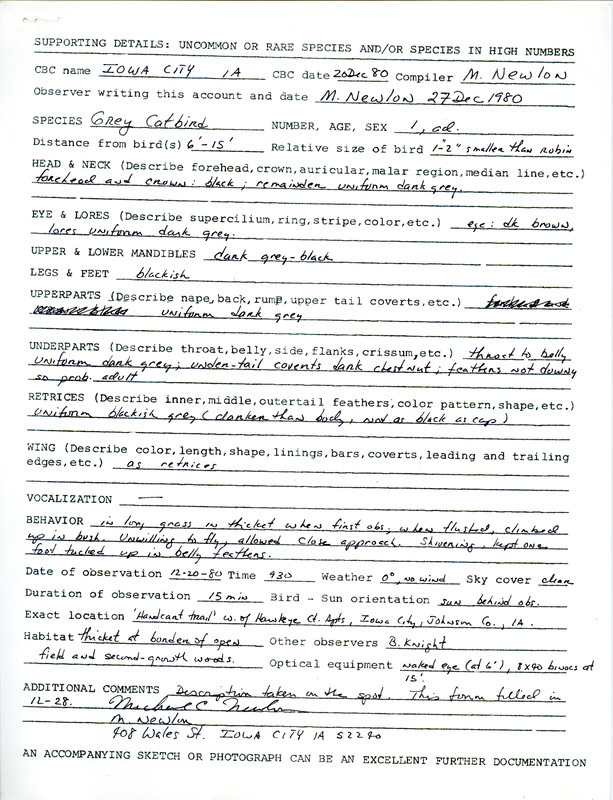 SUPPORTING DETAILS: UNCOMMON OR RARE SPECIES AND/OR SPECIES IN HIGH NUMBERS
CBC name IOWA CITY IA CBC date 20Dec80 Compiler M. Newlon
Observer writing this account and date M. Newlon 27Dec1980
SPECIES Grey Catbird NUMBER, AGE, SEX 1, ad.
Distance from bird(s) 6'-15' Relative size of bird 1"-2" smaller than robin
HEAD & NECK (Describe forehead, crown, auricular, malar region, median line, etc.)
forehead and crown: black; remainder uniform dark grey.
EYE & LORES (Describe supercilium, ring, stripe, color, etc.) eye: dk brown,
lores uniform dark grey.
UPPER & LOWER MANDIBLES dark grey-black
LEGS & FEET blackish
UPPERPARTS (Describe nape, back, rump, upper tail coverts, etc.)
uniform dark grey
UNDERPARTS (Describe throat, belly, side, flanks, crissum, etc.) throat to belly
uniform dark grey; under-tail coverts dark chestnut; feathers not downy
so prob. adult
RETRICES (Describe inner, middle, outertail feathers, color pattern, shape, etc.)
uniform blackish grey (darker than body, not as black as cap)
WING (Describe color, length, shape, linings, bars, coverts, leading and trailing
edges, etc.) as retrices
VOCALIZATION —
BEHAVIOR in long grass in thicket when first obs; when flushed, climbed
up in bush. Unwilling to fly, allowed close approach. Shivering, kept one
foot tucked up in belly feathers.
Date of observation 12-20-80 Time 930 Weather 0°, no wind Sky cover clear
Duration of observation 15 min Bird - Sun orientation sun behind obs.
Exact location 'Handcart trail' w. of Hawkeye Ct. Apts, Iowa City, Johnson Co., IA.
Habitat thicket at border of open Other observers B. Knight
field and second-growth woods. Optical equipment naked eye (at 6'), 8x40 binocs at
15'.
ADDITIONAL COMMENTS Description taken on the spot. This form filled in
12-28. Michael C. Newlon
M. Newlon
408 Wales St. IOWA CITY IA 52240
AN ACCOMPANYING SKETCH OR PHOTOGRAPH CAN BE AN EXCELLENT FURTHER DOCUMENTATION